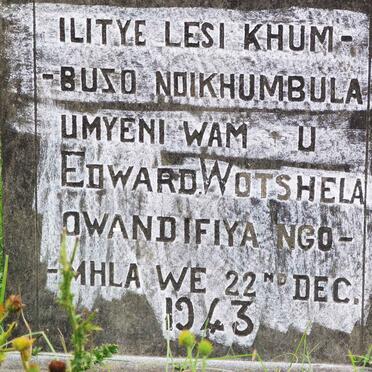 ILITYE LESI KHUM-
-BUZO NDIKHUMBULA
UMYENI WAM U
EDWARD.WOTSHELA
OWANDIFIYA NGO-
-MHLA WE 22ND DEC.
1943